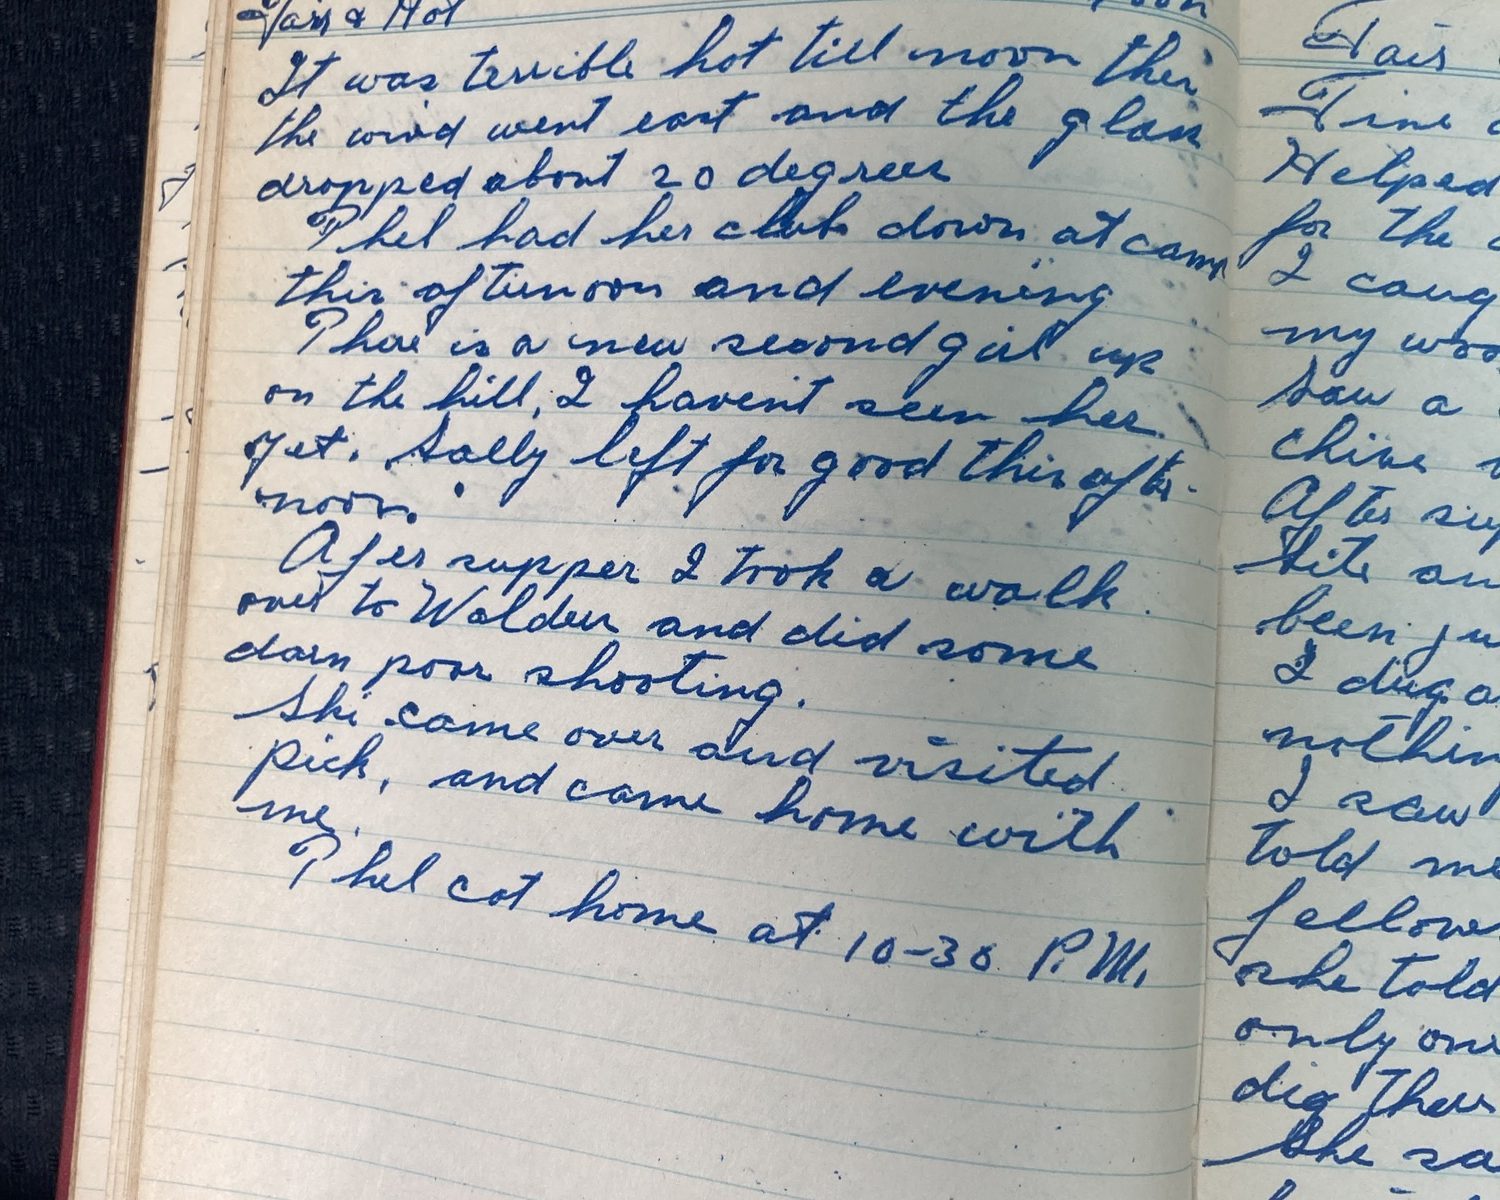 Fair & Hot
It was terrible hot till noon then
the wind went east and the glass
dropped about 20 degrees
Phel had her club down at camp
this afternoon and evening
Thore is a new second girl up
on the hill, I haven't seen her
yet. Sally left for good this after-
noon.
After supper I took a walk
over to Walden and did some
darn poor shooting.
Ski came over and visited
Pick, and came home with
me.
Phel cot home at 10-30 P.M.
Fair
Fine
Helped
for the
I caug
my woo
Saw a
chine
After sup
Site an
been ju
I dug a
nothin
I saw
told me
fellows
she told
only one
dig them
She sa